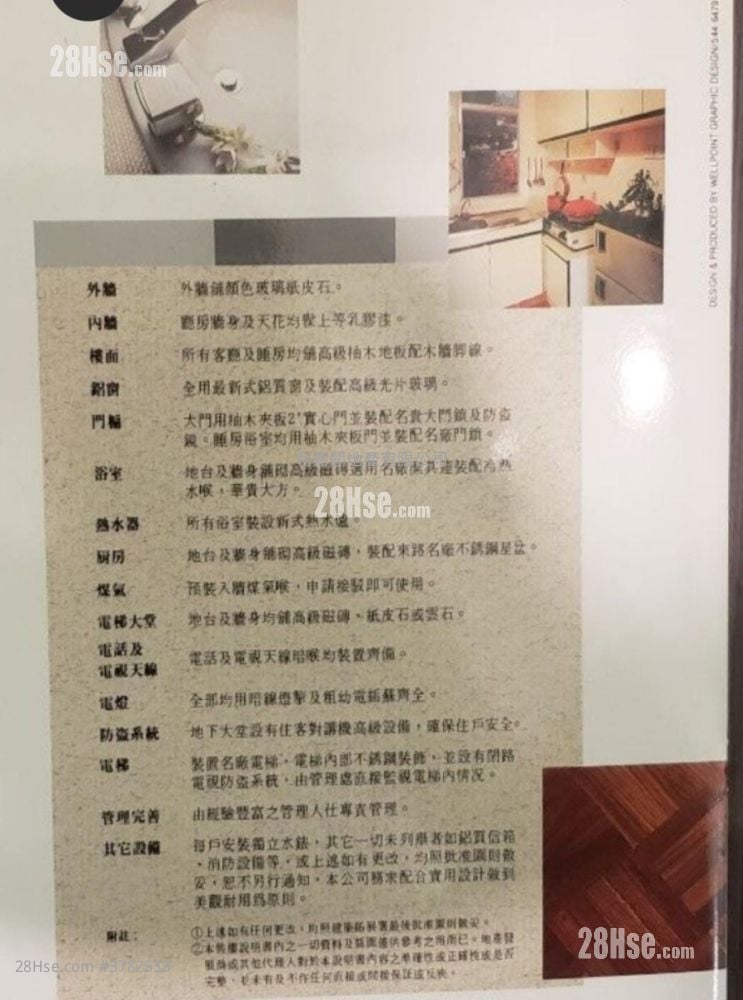 28Hse.com
DESIGN & PRODUCED BY WELLPOINT GRAPHIC DESIGN/544 6479
外牆 外牆舖顏色玻璃紙皮石。
內牆 廳房牆身及天花均髹上等乳膠漆。
樓面 所有客廳及睡房均舖高級柚木地板配木牆脚線。
鋁窗 全用最新式鋁質窗及裝配高級光片玻璃。
門 大門用柚木夾板2"實心門並裝配名貴大門鎖及防盜
鏡。睡房浴室均用柚木夾板門並裝配名廠門鎖。
浴室 地台及牆身舖砌高級磁磚選用名廠潔具連裝配冷熱
水喉,華貴大方。
28Hse.com
熱水器 所有浴室裝設新式熱水爐。
厨房 地台及牆身舖砌高級磁磚,裝配來路名廠不銹鋼星盆。
煤氣 預裝入牆煤氣喉,申請接駁即可使用。
電梯大堂 地台及牆身均舖高級磁磚、紙皮石或雲石。
電話及
電視天線 電話及電視天線暗喉均裝置齊備。
電燈 全部均用暗線燈掣及粗幼電插蘇齊全。
防盜系統 地下大堂設有住客對講機高級設備,確保住戶安全。
電梯 裝置名廠電梯,電梯內部不銹鋼裝飾,並設有閉路
電視防盜系統,由管理處直接監視電梯內情況。
管理完善 由經驗豐富之管理人仕專責管理。
其它設備 每戶安裝獨立水錶,其它一切未列舉者如鋁質信箱
,消防設備等,或上述如有更改,均照批准圖則做
妥,恕不另行通知,本公司務求配合實用設計做到
美觀耐用爲原則。
附註: ①上述如有任何更改,均照建築師展選最後批准圖則做妥。
②本售樓說明書內之一切資料及插圖僅供參考之用而已。地產發
展商或其他代理人對於本說明書內容之準確性或正確性或是否
完整,並未有及不作任何直接或間接保証或反映。
28Hse.com
28Hse.com